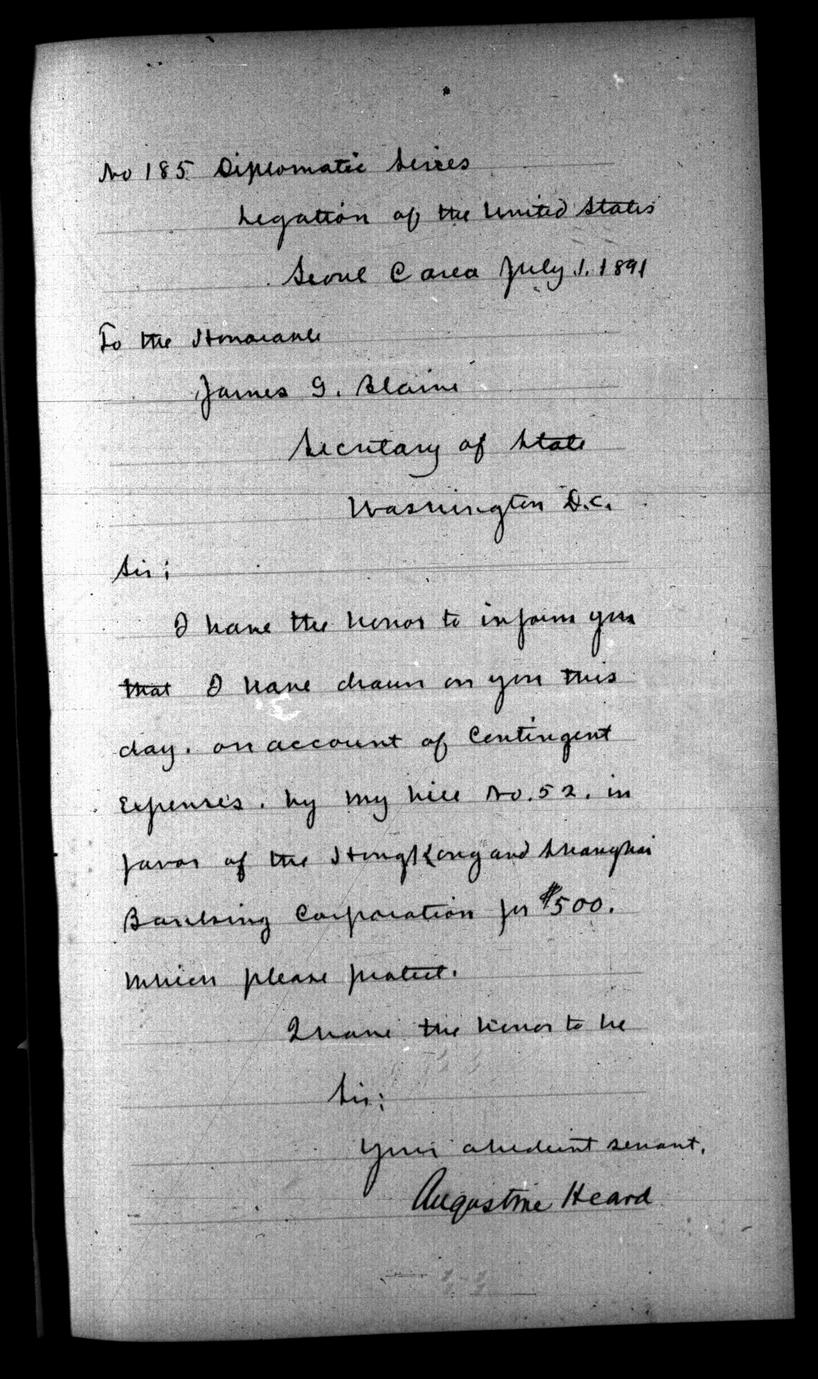 No 185 Diplomatic Series
Legation of the United States
Seoul Corea July 1. 1891
To the Honorable
James G. Blaine
Secretary of State
Washington D.C.
Sir;
I have the honor to inform you
that I have drawn on you this
day. on account of Contingent
Expenses. by my bill No. 52. in
favor of the HongKong and Shanghai
Banking Corporation for $500.
which please protect.
I have the honor to be
Sir;
Your obedient servant,
Augustine Heard